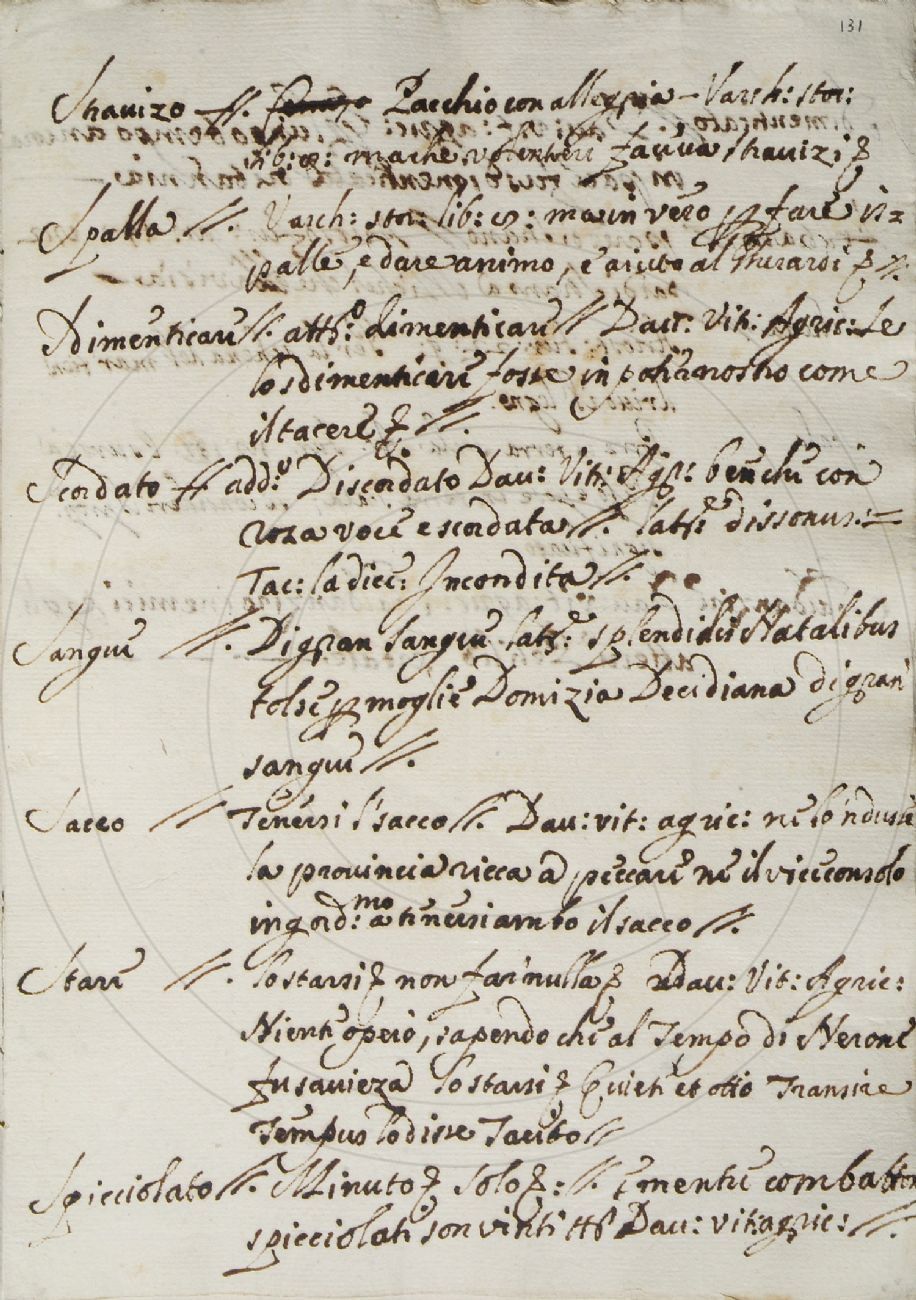 131
Stravizo //. Pacchio con allegria – Varch: stor:
lib: 8: ma che volentieri faceva stravizi &
Spalla //. Varch: stor: lib: 8: ma in vero p fare is=
palle, e dare animo, e aiuto al Gherardi & //.
Dimenticare //. att:º dimenticare // Dav: Vit: Agric: Se
lo sdimenticare fosse in potestà nostra come
il tacere & //.
Scordato // add:º Discordato Dav: Vit: Agr: benche con
roza voce e scordata //. lat: dissonus: =
Tac: la dice: Incondita //.
Sangue //. Di gran sangue lat:e splendidis Natalibus
tolse p moglie Domizia Decidiana di gran
sangue //.
Sacco // Tenersi 'l sacco //. Dav: vit: agric: ne lo 'ndusse
la provincia ricca a peccare ne il viceconsolo
ingord:mo a tenersi ambo il sacco //.
Stare //. lo starsi & non far nulla & Dav: Vit: Agric:
Niente operò, sapendo che al Tempo di Nerone
fu savieza lo starsi & Quiete et otio Transire
Tempus lo disse Tacito //
Spicciolato //. Minuto & solo &: //. e mentre combatton
spicciolati son vinti Dav: vit: agric: //.